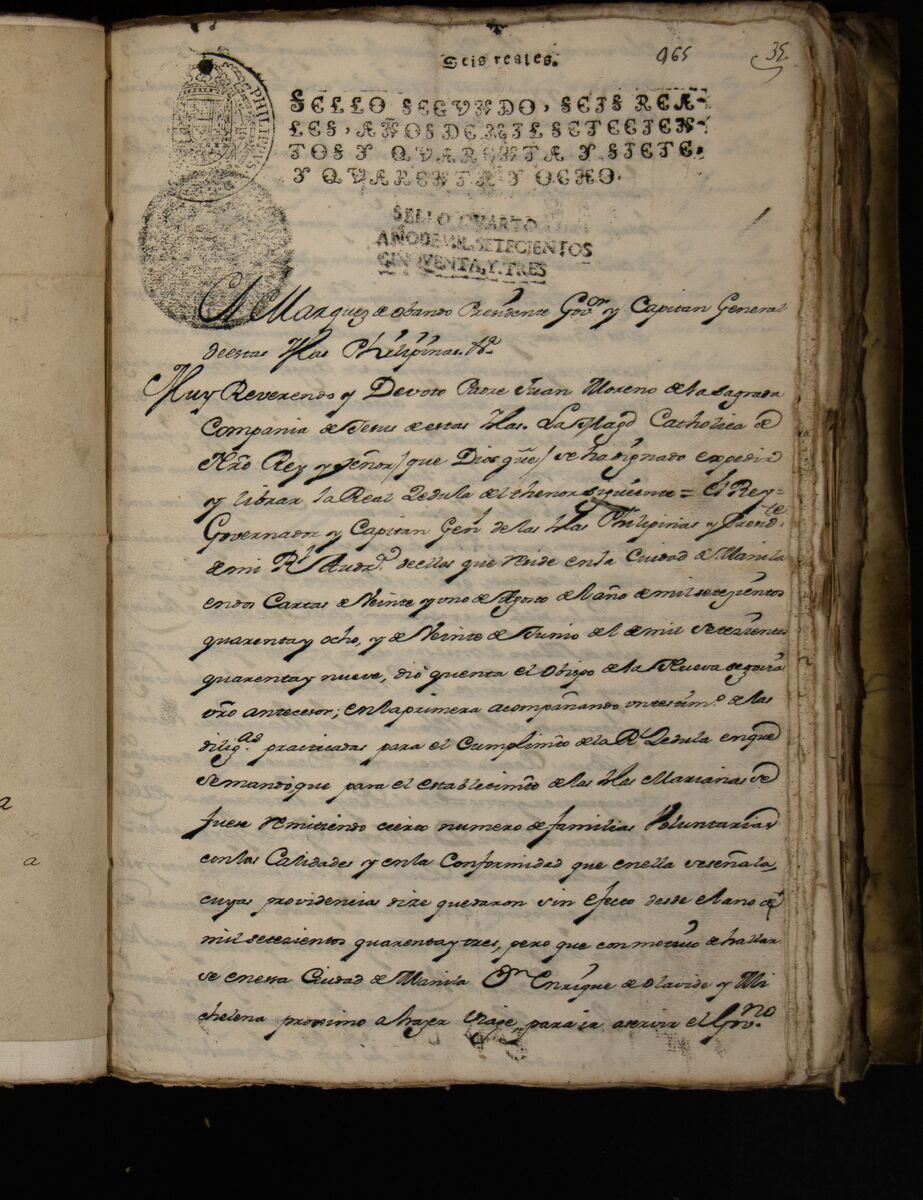 Seis reales. 965 35
PHILIPPVS
SELLO SEGVNDO, SEIS REA-
LES, AÑOS DE MIL SETECIEN-
TOS Y QVARENTA Y SIETE,
Y QVARENTA Y OCHO.
SELLO QUARTO
AÑO DE MIL, SETECIENTOS
CINQVENTA, Y, TRES
El Marquez de obando Presidente Govor y Capitan General
de estas Yslas Philipinas. &a
Muy Reverendo y Devoto Padre Juan Moreno de la Sagrada
Compania de Jesus de estas Yslas. La Magd Catholica de
Nro Rey y señor/ que Dios gue/ se ha dignado expedir
y librar la Real Zedula del thenor siguiente = El Rey =
Governador y Capitan Genl de las Yslas Philipinas y Presidte
de mi Rl Auda. de ellas que reside en la Ciudad de Manila
en dos Cartas de Veinte y uno de Agosto del año de mil setezientos
quarenta y ocho, y de Veinte de Junio del de mil Setezientos
quarenta y nueve, dió quenta el Obispo de la Nueva Segovia
vro antecesor; en la primera acompañando un testimo. de las
diligas. practicadas para el Cumplimto de la Rl Zedula en que
se mandó que para el establecimto de las Yslas Marianas se
fuese remitiendo cierto numero de familias Voluntarias
con las Calidades y en la Conformidad que en ella se señala,
cuyas providencias dize quedaron sin efecto desde el ano de
mil setezientos quarenta y tres, pero que con motivo de hallar
se en essa Ciudad de Manila Dn Enrique de Olavide y Mi
chelena proximo a hazer viage para ir a servir el Govno